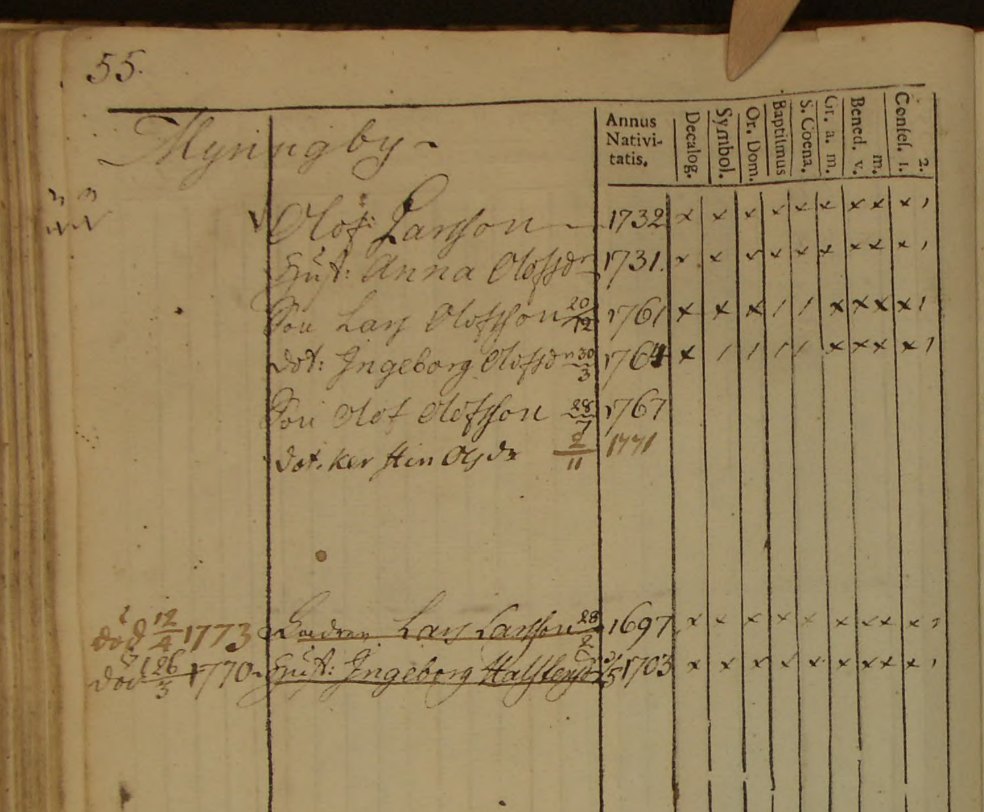 55.
Myringby
Annus Nativi-tatis. Decalog. Symbol. Or. Dom. Baptismus S. Coena. Gr. a. m. Bened. v. m. Confes. 1. 2.
Olof Larsson 1732 x x x x x x x x x ,
Hust: Anna Olofsdr 1731. x x x x x x x x x ,
Son Lars Olofsson 20/12 1761 x x x / / x x x x ,
dot: Ingeborg Olofsdr 30/3 1764 x / / / / x x x x ,
Son Olof Olofsson 28/7 1767
dot. Kerstin Olsdr 2/11 1771
död 12/4 1773 Lars Larsson 1697 x x x x x x x x x ,
död 26/3 1770 Hust: Ingeborg 1703 x x x x x x x x x ,